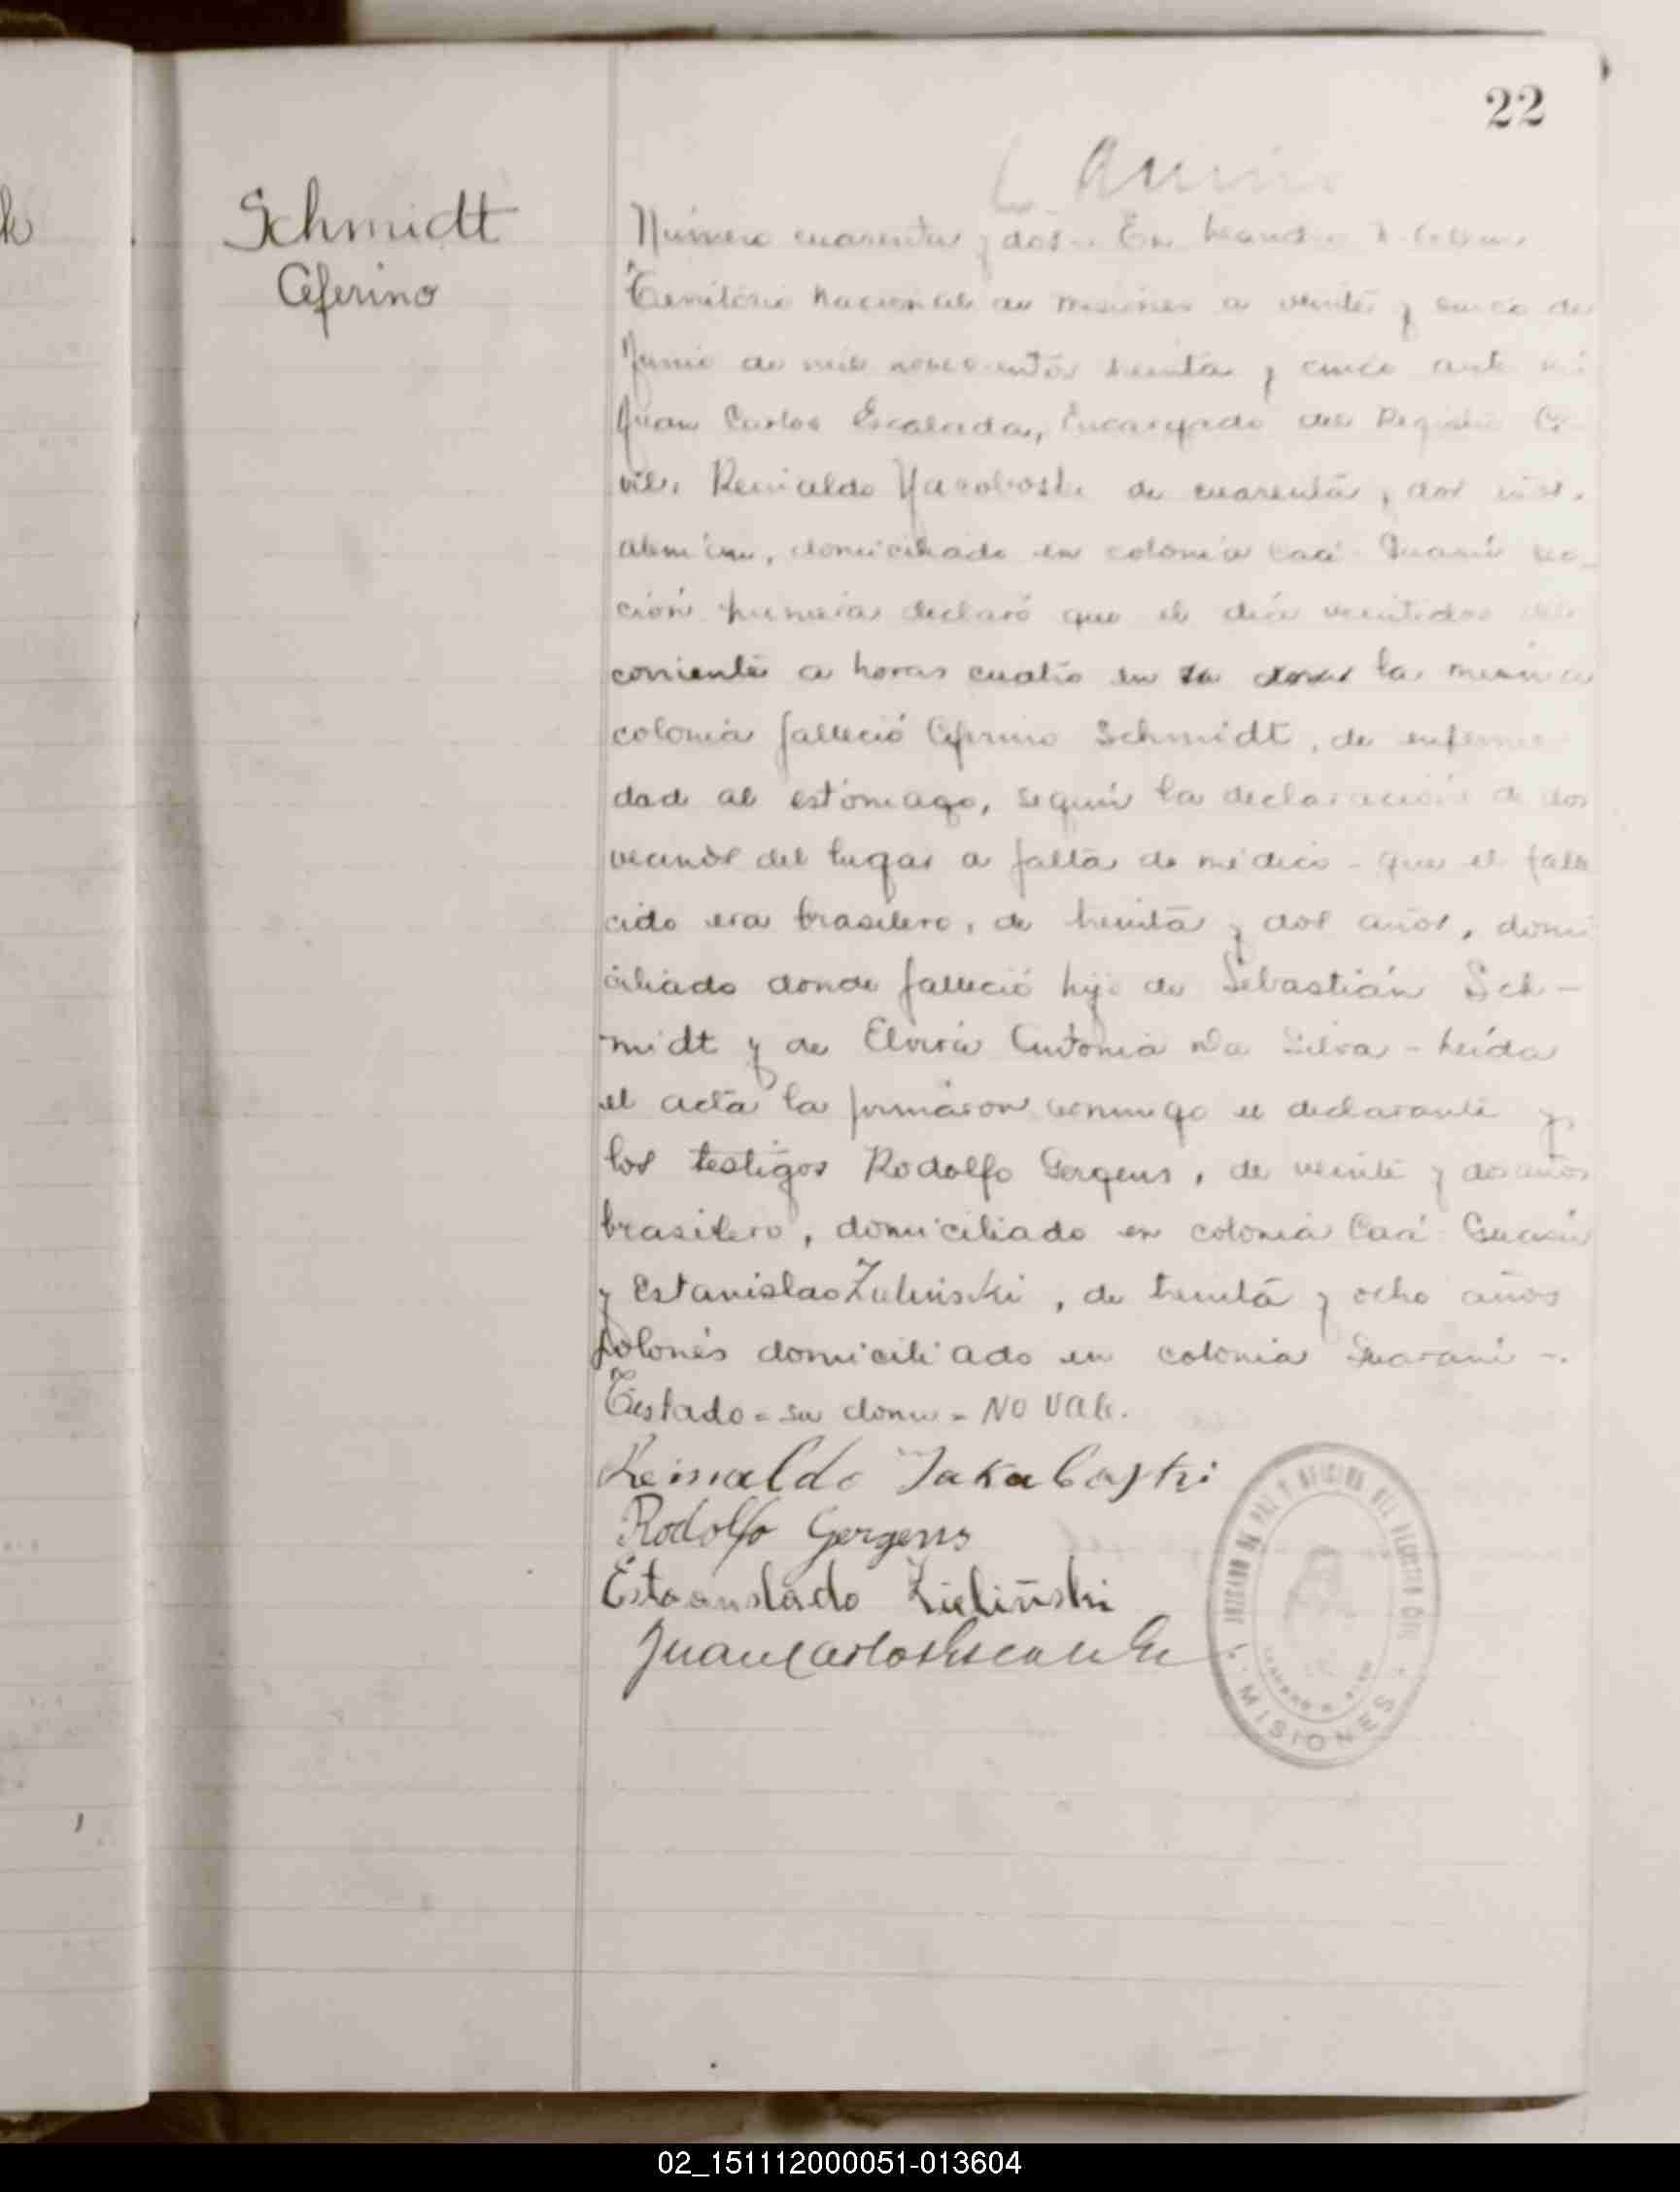 22
Schmidt
Ceferino
Número cuarenta y dos - En Leandro N.
Territorio Nacional de Misiones a veinte y cinco de
Junio de mil novecientos treinta y cinco ante mi
Juan Carlos Escalada, Encargado del Registro Ci
vil, Reinaldo Yacoboski de cuarenta y dos años,
alemán, domiciliado en colonia Caá-Guazú sec_
ción primera declaró que el día veintidos del
corriente a horas cuatro en su domi la misma
colonia falleció Ceferino Schmidt, de enferme
dad al estómago, según la declaración de dos
vecinos del lugar a falta de médico - que el fale
cido era brasilero, de treinta y dos años, domi
ciliado donde falleció hijo de Sebastián Sch-
midt y de Elviria Antonia Da Silva - Leída
el acta la firmaron conmigo el declarante y
los testigos Rodolfo Gergens, de veinte y dos años
brasilero, domiciliado en colonia Caá-Guazú
y Estanislao Zulinski, de treinta y ocho años
polonés domiciliado en colonia Guaraní -.
Testado = su domi = NO VALE.
Reinaldo Jakabastki
Rodolfo Gergens
Estaanslado Zieliñski
Juan Carlos Escalada
JUZGADO DE PAZ Y OFICINA DEL REGISTRO CIVIL
LEANDRO N. ALEM
· MISIONES ·
02_151112000051-013604